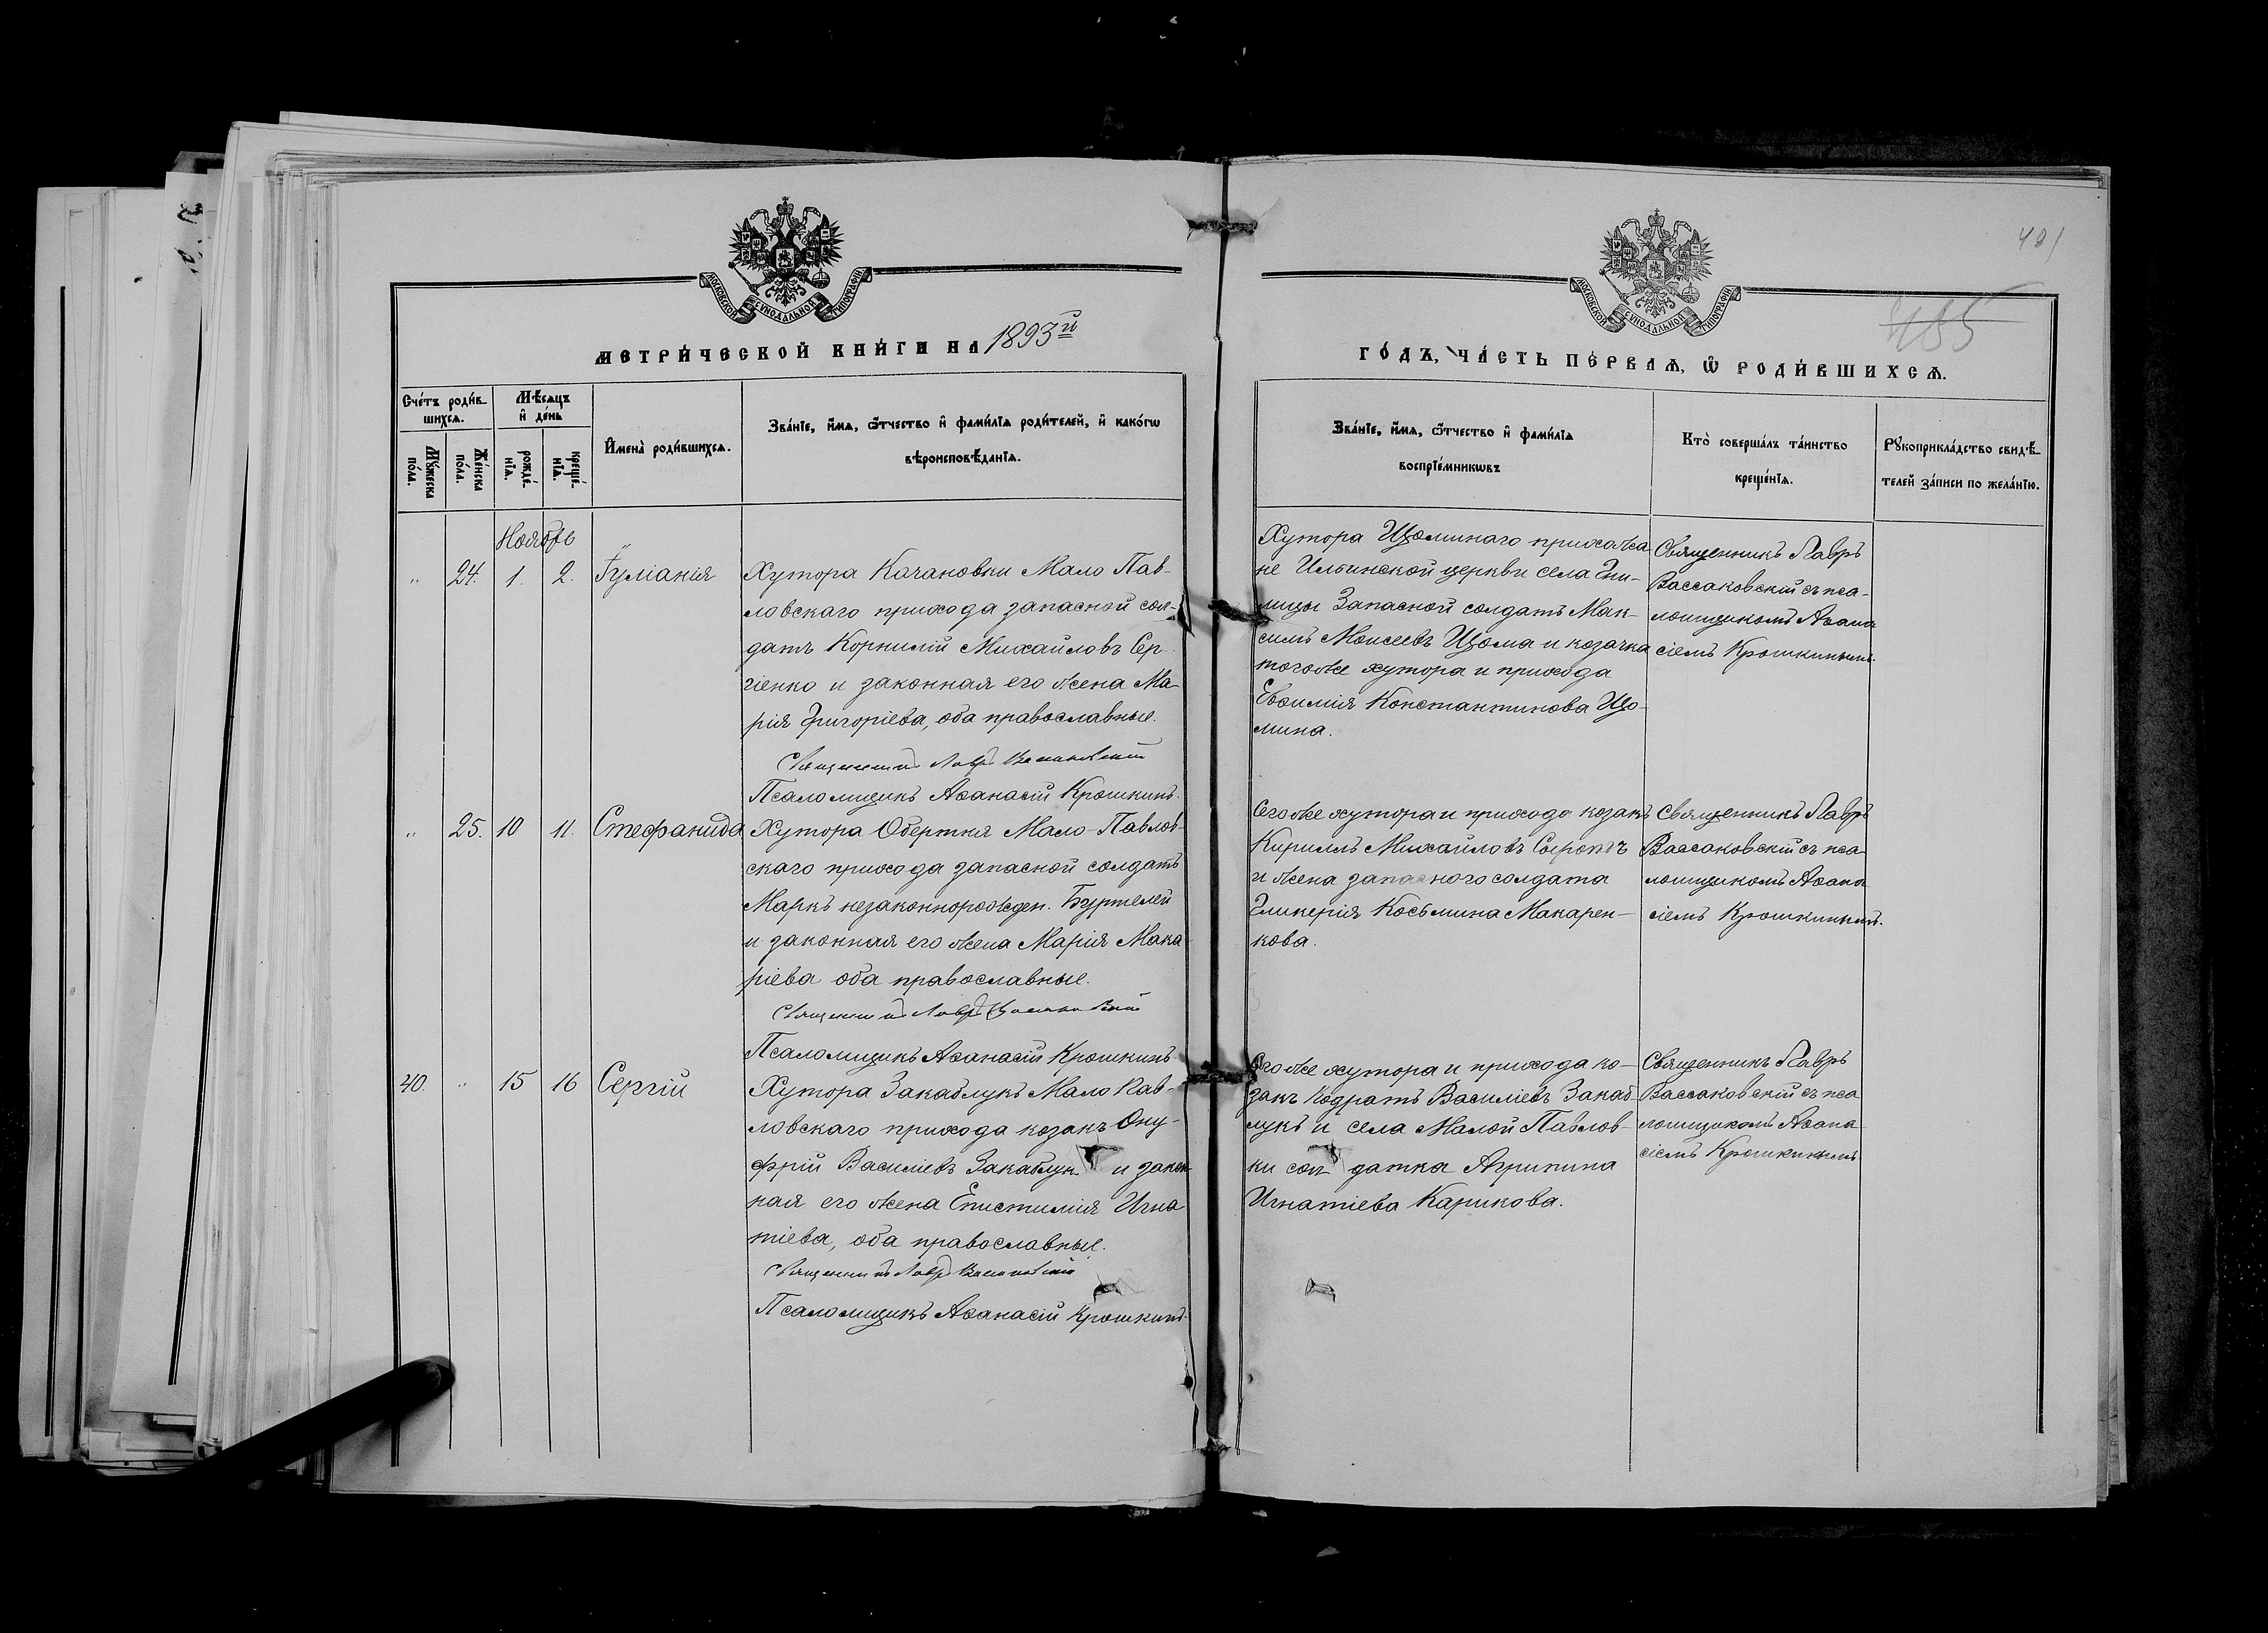 МОСКОВСКОЙ СУНОДАЛЬНОЙ ТИПОГРАФІИ
МЕТРИ́ЧЕСКОЙ КНИ́ГИ НА 1893й
Сче́тъ роди́в-
шихсѧ.
Мѣ́сѧцъ
и҆ де́нь
Мꙋ́жеска
по́ла.
Же́нска
по́ла.
рожде́-
нїѧ.
креще́-
нїѧ.
И҆мена̀ роди́вшихсѧ.
Зва́нїе, и҆́мѧ, ѻ҆́тчество и҆ фами́лїѧ роди́телей, и҆ како́гѡ
вѣроисповѣ́данїѧ.
Ноябрь
„ 24. 1. 2. Іуліанія
Хутора Качановки Мало Пав-
ловскаго прихода запасной сол-
датъ Корнилій Михайловъ Сер-
гіенко и законная его жена Ма-
рія Григоріева, оба православные.
Священникъ Лавръ Вассаковскій
Псаломщикъ Аѳанасій Крошкинъ.
„ 25. 10 11. Стефанида
Хутора Обертня Мало-Павлов-
скаго прихода запасной солдатъ
Маркъ незаконнорожден. Буртелей
и законная его жена Марія Мака-
ріева оба православные.
Священникъ Лавръ Вассаковскій
Псаломщикъ Аѳанасій Крошкинъ
40. „ 15 16 Сергій
Хутора Закаблукъ Мало Пав-
ловскаго прихода козакъ Ону-
фрій Василіевъ Закаблукъ и закон-
ная его жена Епистимія Игна
тіева, оба православные.
Священникъ Лавръ Вассаковскій
Псаломщикъ Аѳанасій Крошкинъ.
401
485
МОСКОВСКОЙ СУНОДАЛЬНОЙ ТИПОГРАФІИ
ГО́ДЪ, ЧА́СТЬ ПЕ́РВАѦ, Ѡ҆ РОДИ́ВШИХСѦ.
Зва́нїе, и҆́мѧ, ѻ҆́тчество и҆ фами́лїѧ
воспрїе́мникѡвъ
Кто̀ соверша́лъ та́инство
креще́нїѧ.
Рꙋкоприкла́дство свидѣ́-
телей за́писи по жела́нїю.
Хутора Щоминаго прихожа
не Ильинской церкви села Гни-
лицы Запасной солдатъ Мак-
симъ Моисеевъ Щома и козачка
того же хутора и прихода
Евѳимія Константинова Що-
мина.
Священникъ Лавръ
Вассаковскій съ пса-
ломщикомъ Аѳана
сіемъ Крошкинымъ.
Сего же хутора и прихода козакъ
Кириллъ Михайловъ
и жена запасного солдата
Гликерія Косьмина Макарен-
кова.
Священникъ Лавръ
Вассаковскій съ пса
ломщикомъ Аѳана
сіемъ Крошкинымъ.
Сего же хутора и прихода ко-
закъ Кодратъ Василіевъ Закаб-
лукъ и села Малой Павлов-
ки сол датка Агрипина
Игнатіева Карикова.
Священникъ Лавръ
Вассаковскій съ пса
ломщикомъ Аѳана-
сіемъ Крошкинымъ